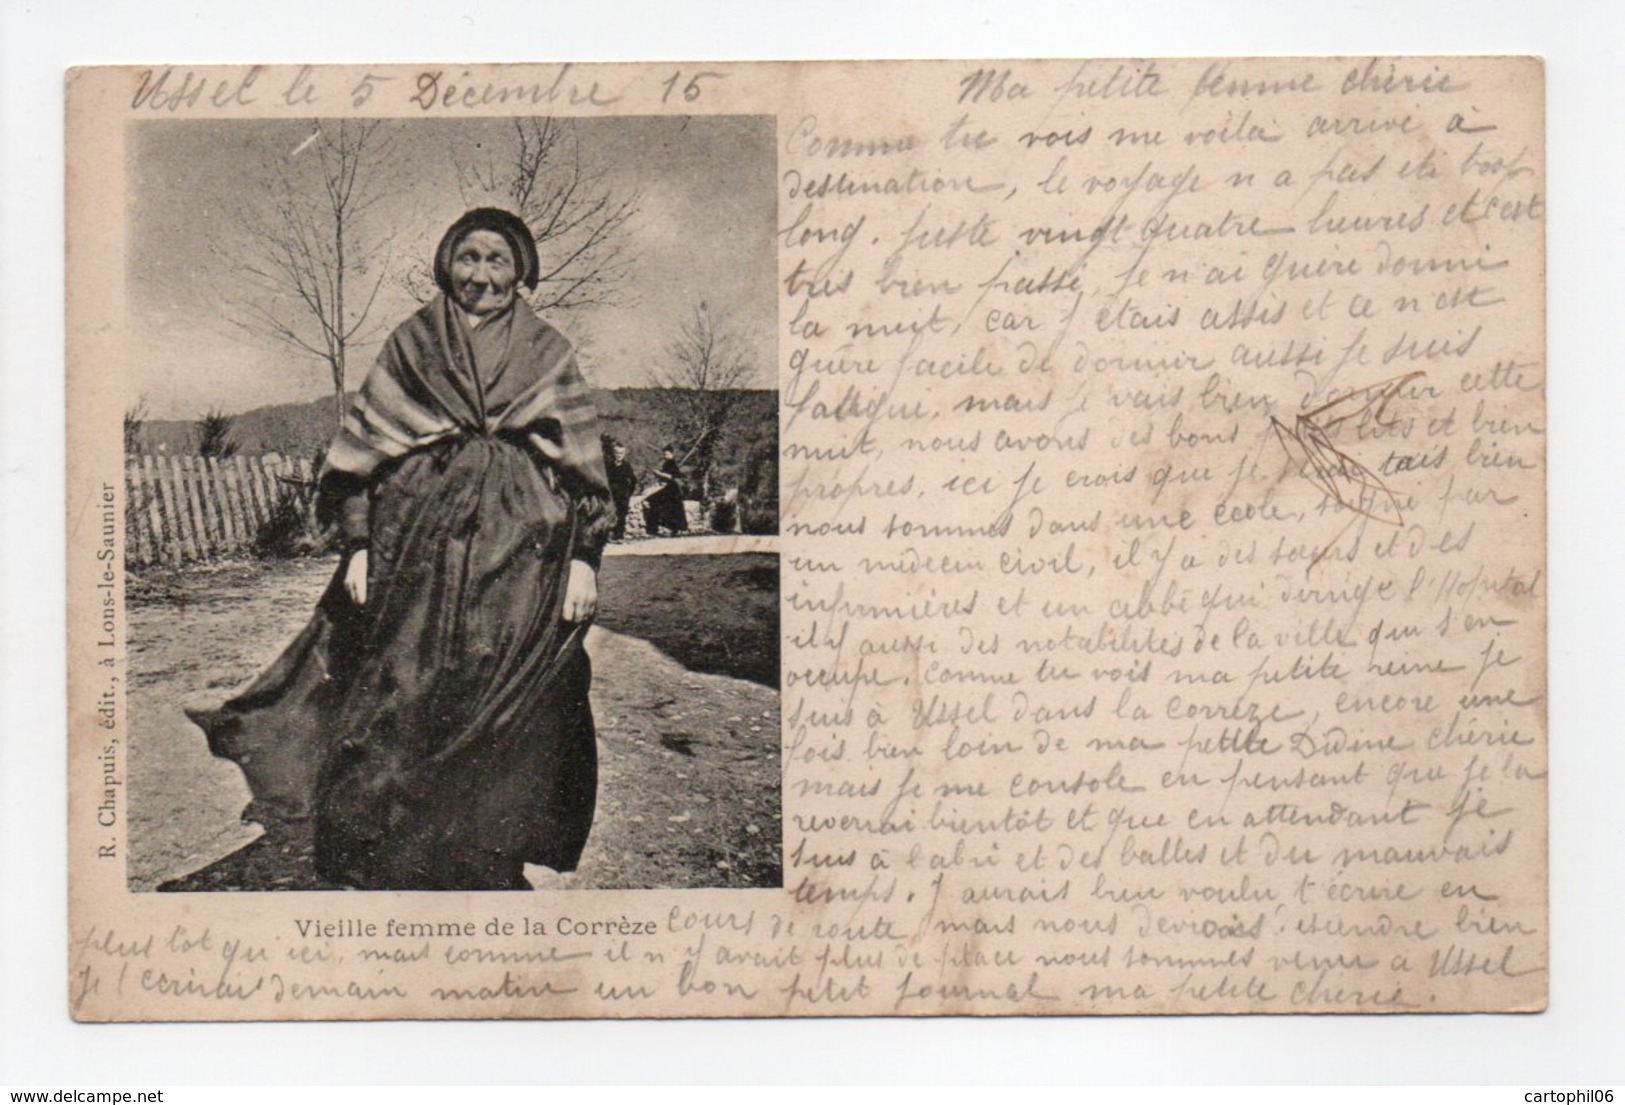 Ussel le 5 Décembre 15
Ma petite femme chérie
Comme tu vois me voila arrivé à
destination, le voyage n a pas été trop
long. juste vingt quatre heures et c'est
très bien passé, je n'ai guère dormi
la nuit, car j étais assis et ce n est
guère facile de dormir aussi je suis
fatigué, mais je vais bien dormir cette
nuit, nous avons des bons lits et bien
propres, ici je crois que je serai tais bien
nous sommes dans une école, soigné par
un médecin civil, il y a des sœurs et des
infirmières et un abbé qui dirige l'Hopital
il y aussi des notabilités de la ville qui s en
occupe. comme tu vois ma petite reine je
suis à Ussel dans la corrèze, encore une
fois bien loin de ma petite Didine chérie
mais je me console en pensant que je la
reverrai bientôt et que en attendant je
suis à l abri et des balles et du mauvais
temps. J aurais bien voulu t écrire en
cours de route, mais nous devions descendre bien
plus tot qu ici, mais comme il n y avait plus de place nous sommes venu a Ussel
je t ecrirai demain matin un bon petit journal ma petite cherie.
Vieille femme de la Corrèze
R. Chapuis, édit., à Lons-le-Saunier
cartophil06
delcampe.net